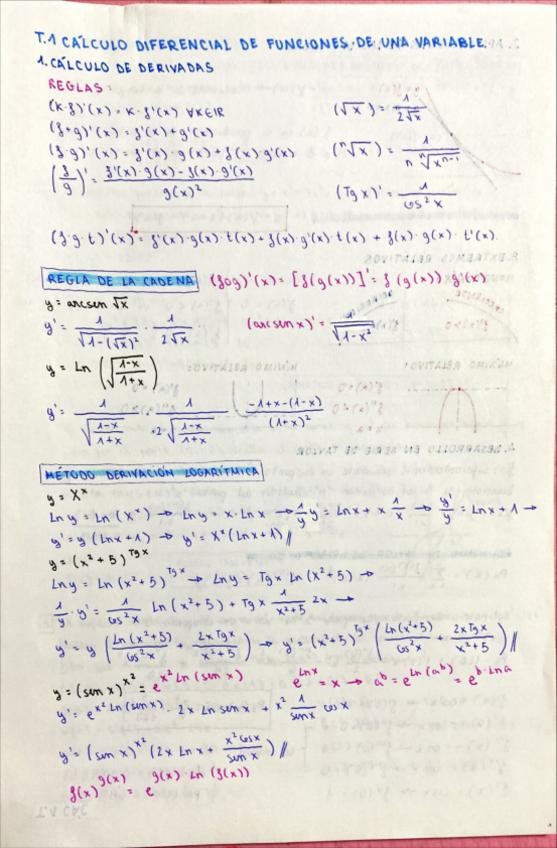 T.1 CÁLCULO DIFERENCIAL DE FUNCIONES DE UNA VARIABLE
1. CÁLCULO DE DERIVADAS
REGLAS:
(k·f)'(x) = k·f'(x) ∀k∈ℝ
(√x) = 1/(2√x)
(f+g)'(x) = f'(x)+g'(x)
(f·g)'(x) = f'(x)·g(x)+f(x)·g'(x)
(ⁿ√x) = 1/(n ⁿ√xⁿ⁻¹)
(f/g)' = (f'(x)·g(x) - f(x)·g'(x))/g(x)²
(Tg x)' = 1/cos²x
(f·g·t)'(x) = f'(x)·g(x)·t(x)+f(x)·g'(x)·t(x) + f(x)·g(x)·t'(x)
REGLA DE LA CADENA (fog)'(x) = [f(g(x))]' = f(g(x))·g'(x)
y = arcsen √x
y' = 1/√(1-(√x)²) · 1/(2√x)
(arcsen x)' = 1/√(1-x²)
y = Ln (√((1-x)/(1+x)))
y' = 1/√((1-x)/(1+x)) · 1/(2·√((1-x)/(1+x))) · (-1+x-(1-x))/(1+x)²
MÉTODO DERIVACIÓN LOGARÍTMICA
y = Xˣ
Ln y = Ln (Xˣ) → Ln y = x·Ln x → 1/y y' = Ln x + x 1/x → y'/y = Ln x + 1 →
y' = y (Ln x + 1) → y' = Xˣ (Ln x + 1) //
y = (x²+5)^(Tg x)
Ln y = Ln (x²+5)^(Tg x) → Ln y = Tg x Ln (x²+5) →
1/y · y' = 1/cos²x Ln (x²+5) + Tg x 1/(x²+5) 2x →
y' = y (Ln(x²+5)/cos²x + 2x Tg x/(x²+5)) → y' = (x²+5)^(Tg x) (Ln(x²+5)/cos²x + 2x Tg x/(x²+5)) //
y = (sen x)^(x²) = e^(x² Ln (sen x))
e^(Ln x) = x → aᵇ = e^(Ln(aᵇ)) = e^(b·Ln a)
y' = e^(x² Ln (sen x)) · 2x Ln sen x + x² 1/sen x cos x
y' = (sen x)^(x²) (2x Ln x + x² cos x/sen x) //
f(x)^(g(x)) = e^(g(x)·Ln (f(x)))